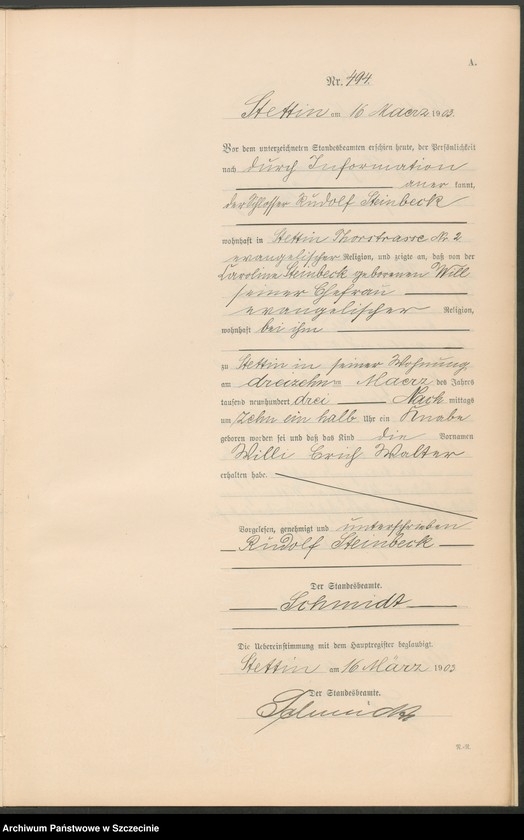 A.
Nr. 494.
Stettin am 16 Maerz 1903.
Vor dem unterzeichneten Standesbeamten erschien heute, der Persönlichkeit
nach durch Information
aner kannt,
der Schlosser Rudolf Steinbeck
wohnhaft in Stettin Thorstrasse Nr. 2
evangelischer Religion, und zeigte an, daß von der
Caroline Steinbeck geborenen Will
seiner Ehefrau
evangelischer Religion,
wohnhaft bei ihm
zu Stettin in seiner Wohnung
am dreizehnten Maerz des Jahres
tausend neunhundert drei Nach mittags
um zehn ein halb Uhr ein Knabe
geboren worden sei und daß das Kind die Vornamen
Willi Erich Walter
erhalten habe.
Vorgelesen, genehmigt und unterschrieben
Rudolf Steinbeck
Der Standesbeamte.
Schmidt
Die Uebereinstimmung mit dem Hauptregister beglaubigt.
Stettin am 16 März 1903
Der Standesbeamte.
Schmidt
Archiwum Państwowe w Szczecinie